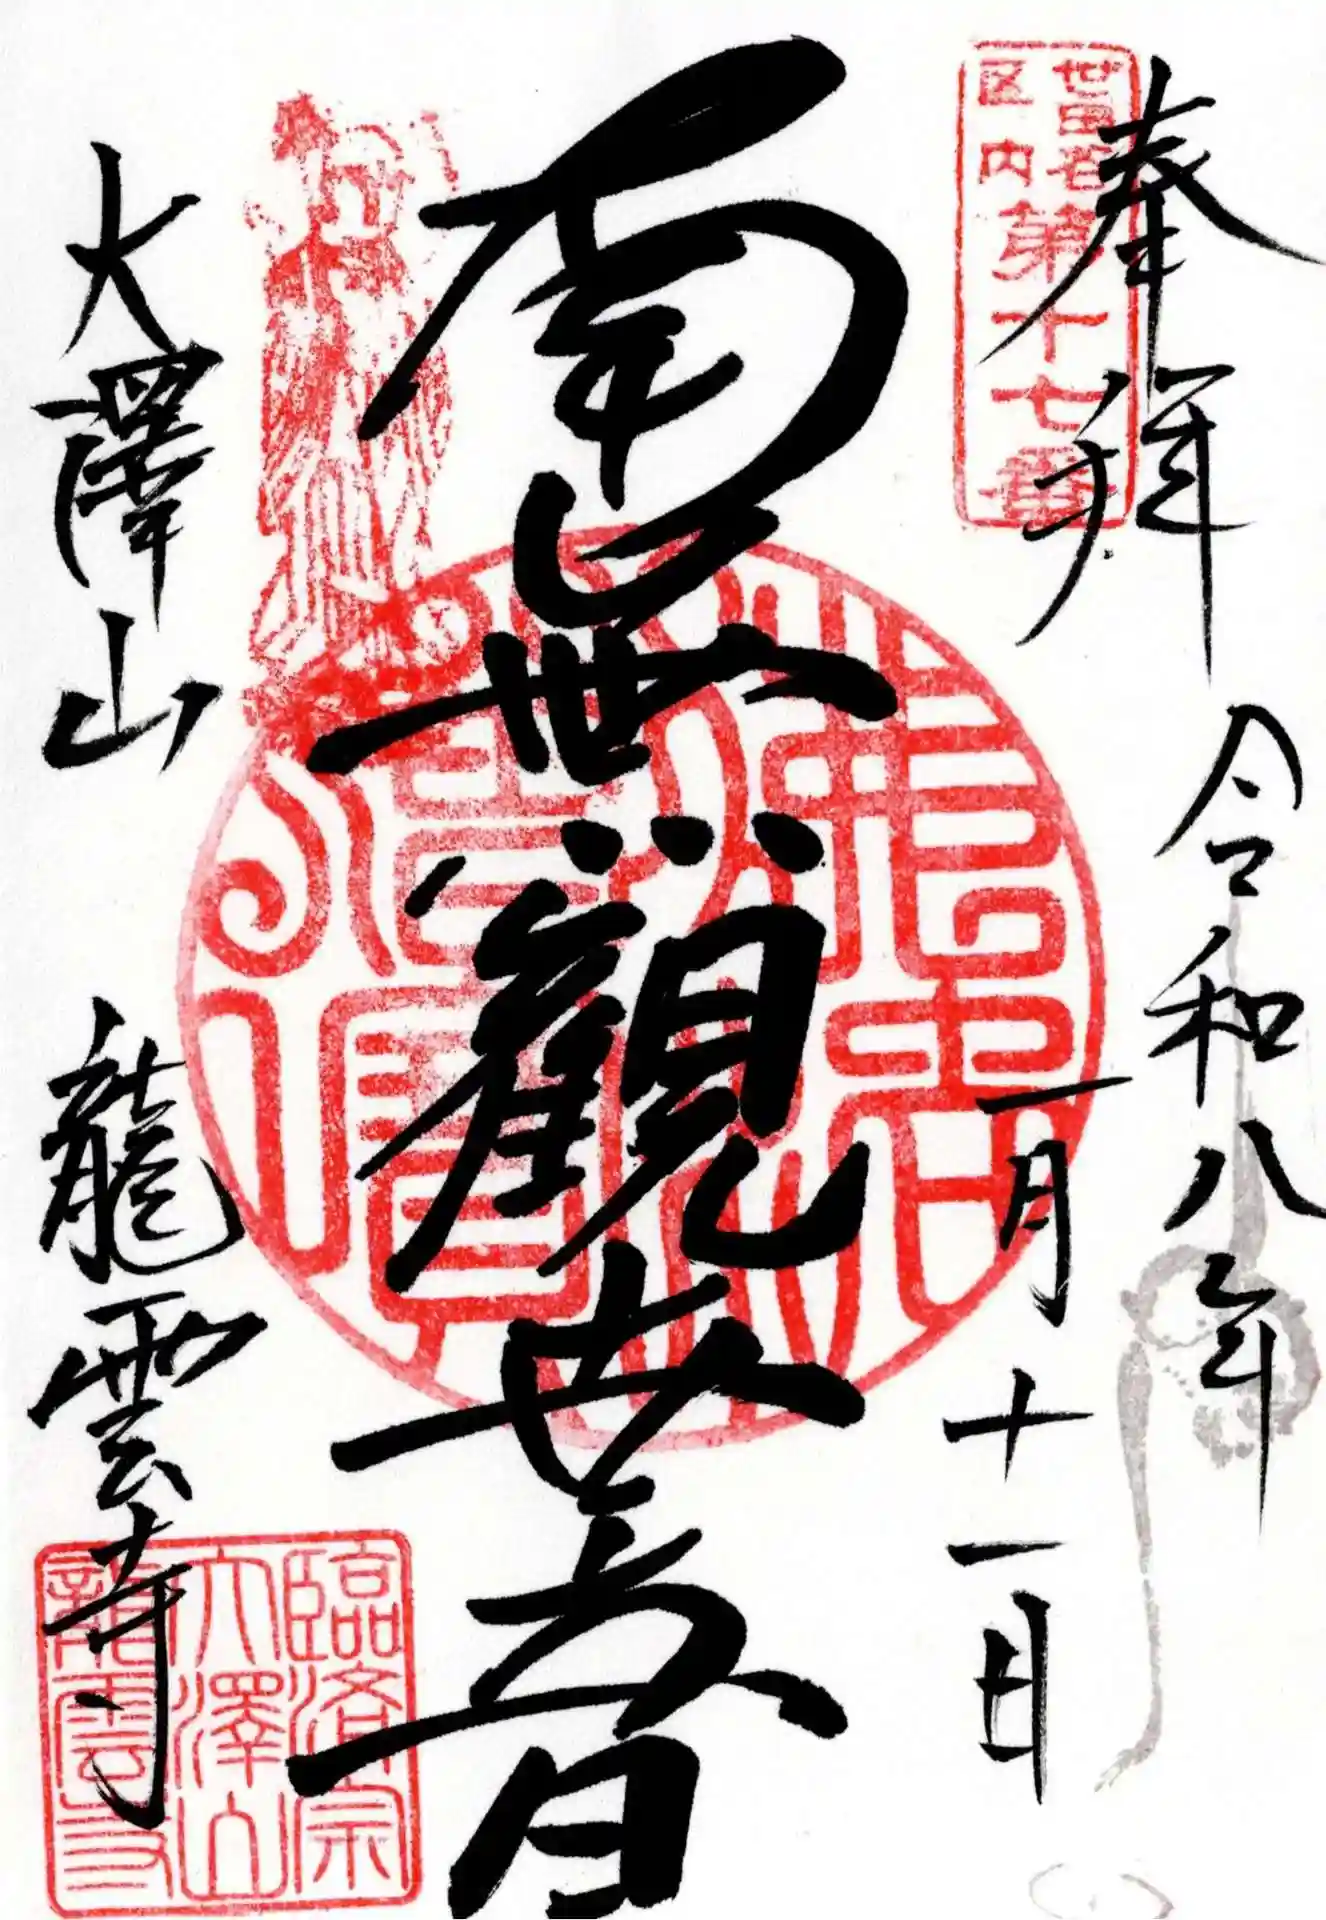 奉拝
世田谷
区内
第十七番
令和八年
一月十一日
南無觀世音
大澤山
龍雲寺
佛法僧寳
臨済宗
大澤山
龍雲寺